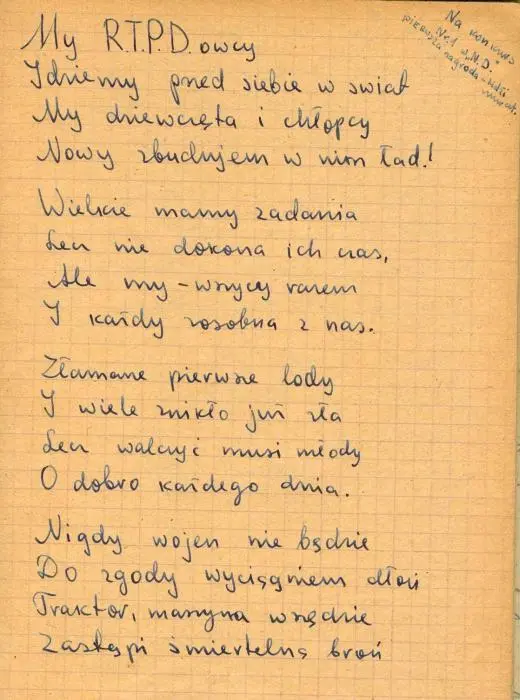 Na konkurs
My R.T.P.D.owcy
pierwsza nagroda -
Idziemy przed siebie w świat
My dziewczęta i chłopcy
Nowy zbudujem w nim ład!
Wielkie mamy zadania
Lecz nie dokona ich czas,
Ale my - wszyscy razem
I każdy zosobna z nas.
Złamane pierwsze lody
I wiele znikło już zła
Lecz walczyć musi młody
O dobro każdego dnia.
Nigdy wojen nie będzie
Do zgody wyciągniem dłoń
Traktor, maszyna wszędzie
Zastąpi śmiertelną broń